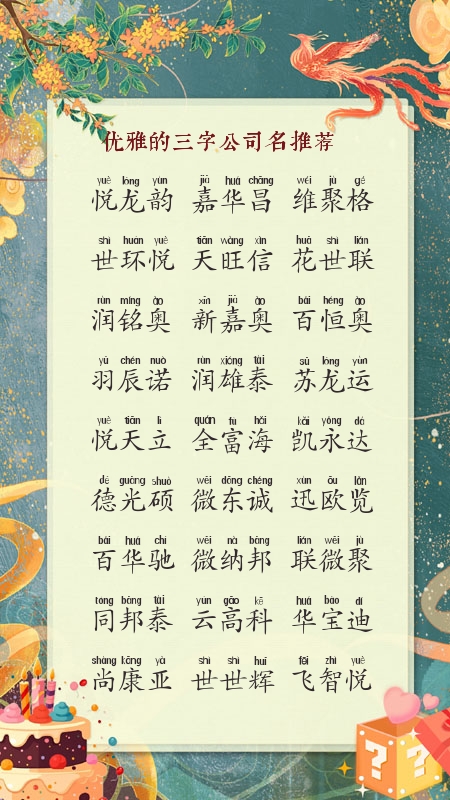 优雅的三字公司名推荐
yuè lóng yùn jiā huá chāng wéi jù gé
悦龙韵 嘉华昌 维聚格
shì huán yuè tiān wàng xìn huā shì lián
世环悦 天旺信 花世联
rùn míng ào xīn jiā ào bǎi héng ào
润铭奥 新嘉奥 百恒奥
yǔ chén nuò rùn xióng tài sū lóng yùn
羽辰诺 润雄泰 苏龙运
yuè tiān lì quán fù hǎi kǎi yǒng dá
悦天立 全富海 凯永达
dé guāng shuò wēi dōng chéng xùn ōu lǎn
德光硕 微东诚 迅欧览
bǎi huá chí wēi nà bāng lián wēi jù
百华驰 微纳邦 联微聚
tóng bāng tài yún gāo kē huá bǎo dí
同邦泰 云高科 华宝迪
shàng kāng yà shì shì huī fēi zhì yuè
尚康亚 世世辉 飞智悦
? ?